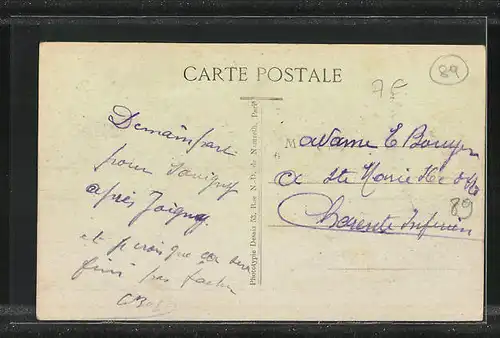 CARTE POSTALE
89
7F
Demain part
pour
après Joigny.
et je crois que ca sera
fini pas
Phototypie Desaix 53, Rue N.-D. de Nazareth, Paris
Madame E
a Ste Marie
89
Charente Inférieure